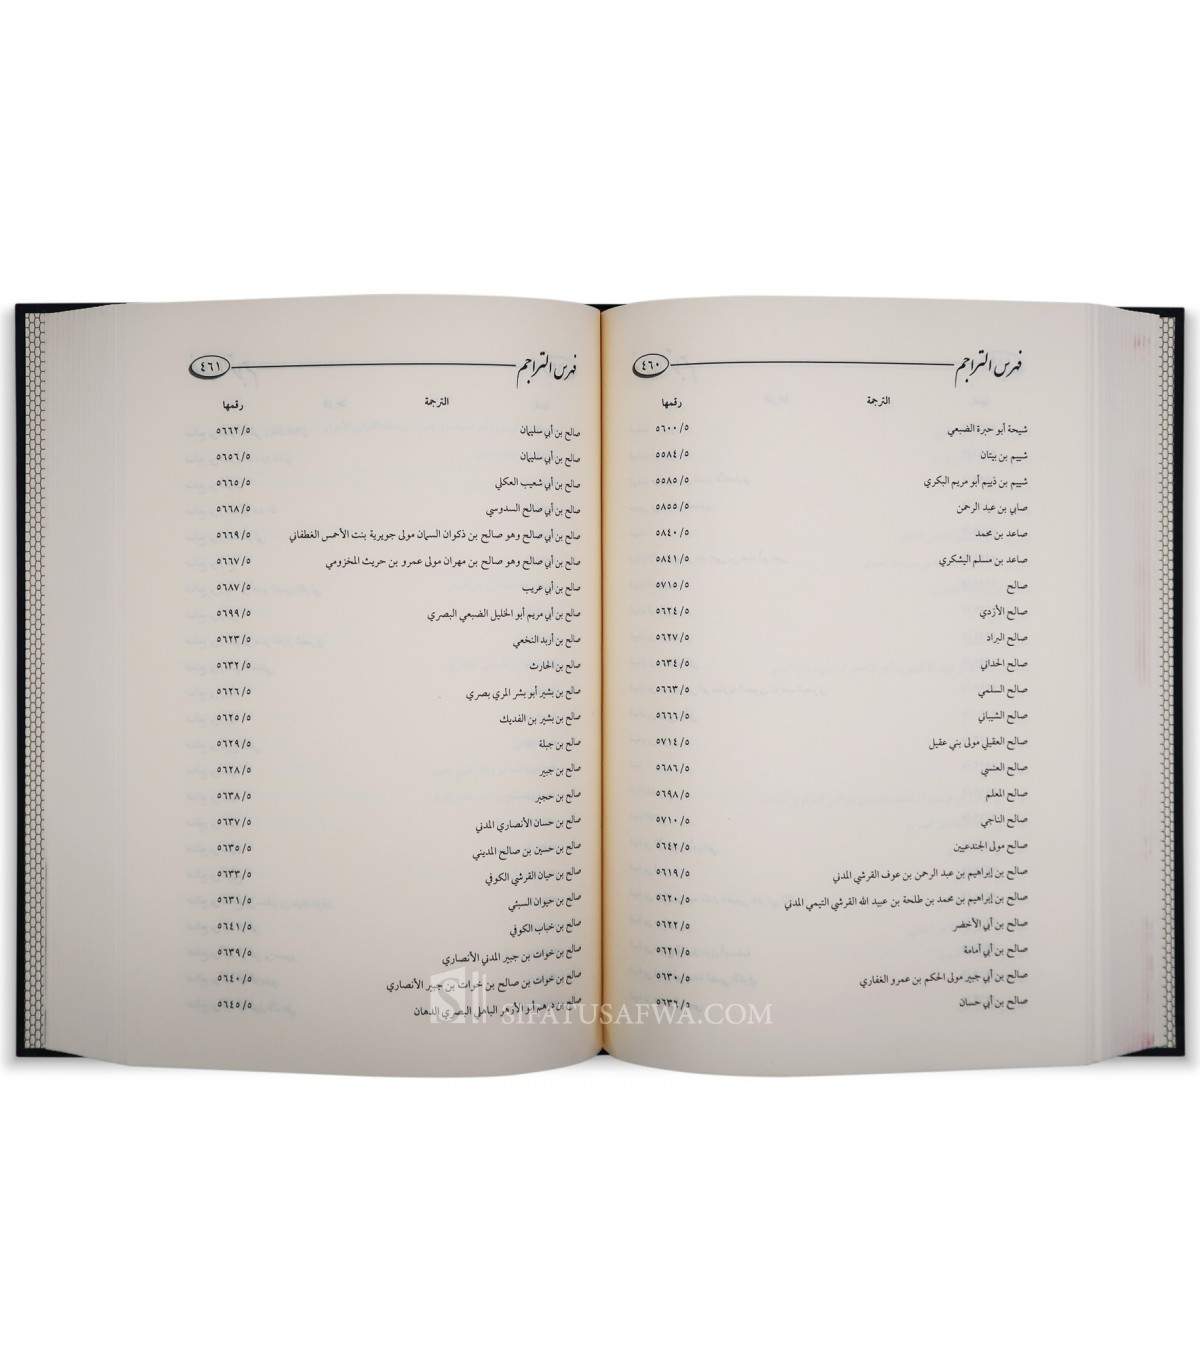 فهرس التراجم ٤٦٠
الترجمة رقمها
شيحة أبو حبرة الضبعي ٥/٥٦٠٠
شييم بن بيتان ٥/٥٥٨٤
شييم بن ذييم أبو مريم البكري ٥/٥٥٨٥
صابي بن عبد الرحمن ٥/٥٨٥٥
صاعد بن محمد ٥/٥٨٤٠
صاعد بن مسلم اليشكري ٥/٥٨٤١
صالح ٥/٥٧١٥
صالح الأزدي ٥/٥٦٢٤
صالح البراد ٥/٥٦٢٧
صالح الحداني ٥/٥٦٣٤
صالح السلمي ٥/٥٦٦٣
صالح الشيباني ٥/٥٦٦٦
صالح العقيلي مولى بني عقيل ٥/٥٧١٤
صالح العنسي ٥/٥٦٨٦
صالح المعلم ٥/٥٦٩٨
صالح الناجي ٥/٥٧١٠
صالح مولى الجندعيين ٥/٥٦٤٢
صالح بن إبراهيم بن عبد الرحمن بن عوف القرشي المدني ٥/٥٦١٩
صالح بن إبراهيم بن محمد بن طلحة بن عبيد الله القرشي التيمي المدني ٥/٥٦٢٠
صالح بن أبي الأخضر ٥/٥٦٢٢
صالح بن أبي أمامة ٥/٥٦٢١
صالح بن أبي جبير مولى الحكم بن عمرو الغفاري ٥/٥٦٣٠
صالح بن أبي حسان ٥/٥٦٣٦
فهرس التراجم ٤٦١
الترجمة رقمها
صالح بن أبي سليمان ٥/٥٦٦٢
صالح بن أبي سليمان ٥/٥٦٥٦
صالح بن أبي شعيب العكلي ٥/٥٦٦٥
صالح بن أبي صالح السدوسي ٥/٥٦٦٨
صالح بن أبي صالح وهو صالح بن ذكوان السمان مولى جويرية بنت الأحمس الغطفاني ٥/٥٦٦٩
صالح بن أبي صالح وهو صالح بن مهران مولى عمرو بن حريث المخزومي ٥/٥٦٦٧
صالح بن أبي عريب ٥/٥٦٨٧
صالح بن أبي مريم أبو الخليل الضبعي البصري ٥/٥٦٩٩
صالح بن أربد النخعي ٥/٥٦٢٣
صالح بن الحارث ٥/٥٦٣٢
صالح بن بشير أبو بشر المري بصري ٥/٥٦٢٦
صالح بن بشير بن الفديك ٥/٥٦٢٥
صالح بن جبلة ٥/٥٦٢٩
صالح بن جبير ٥/٥٦٢٨
صالح بن حجير ٥/٥٦٣٨
صالح بن حسان الأنصاري المدني ٥/٥٦٣٧
صالح بن حسين بن صالح المديني ٥/٥٦٣٥
صالح بن حيان القرشي الكوفي ٥/٥٦٣٣
صالح بن حيوان السبئي ٥/٥٦٣١
صالح بن خباب الكوفي ٥/٥٦٤١
صالح بن خوات بن جبير المدني الأنصاري ٥/٥٦٣٩
صالح بن خوات بن صالح بن خوات بن جبير الأنصاري ٥/٥٦٤٠
صالح بن درهم أبو الأزهر الباهلي البصري الدهان ٥/٥٦٤٥
SIFATUSAFWA.COM